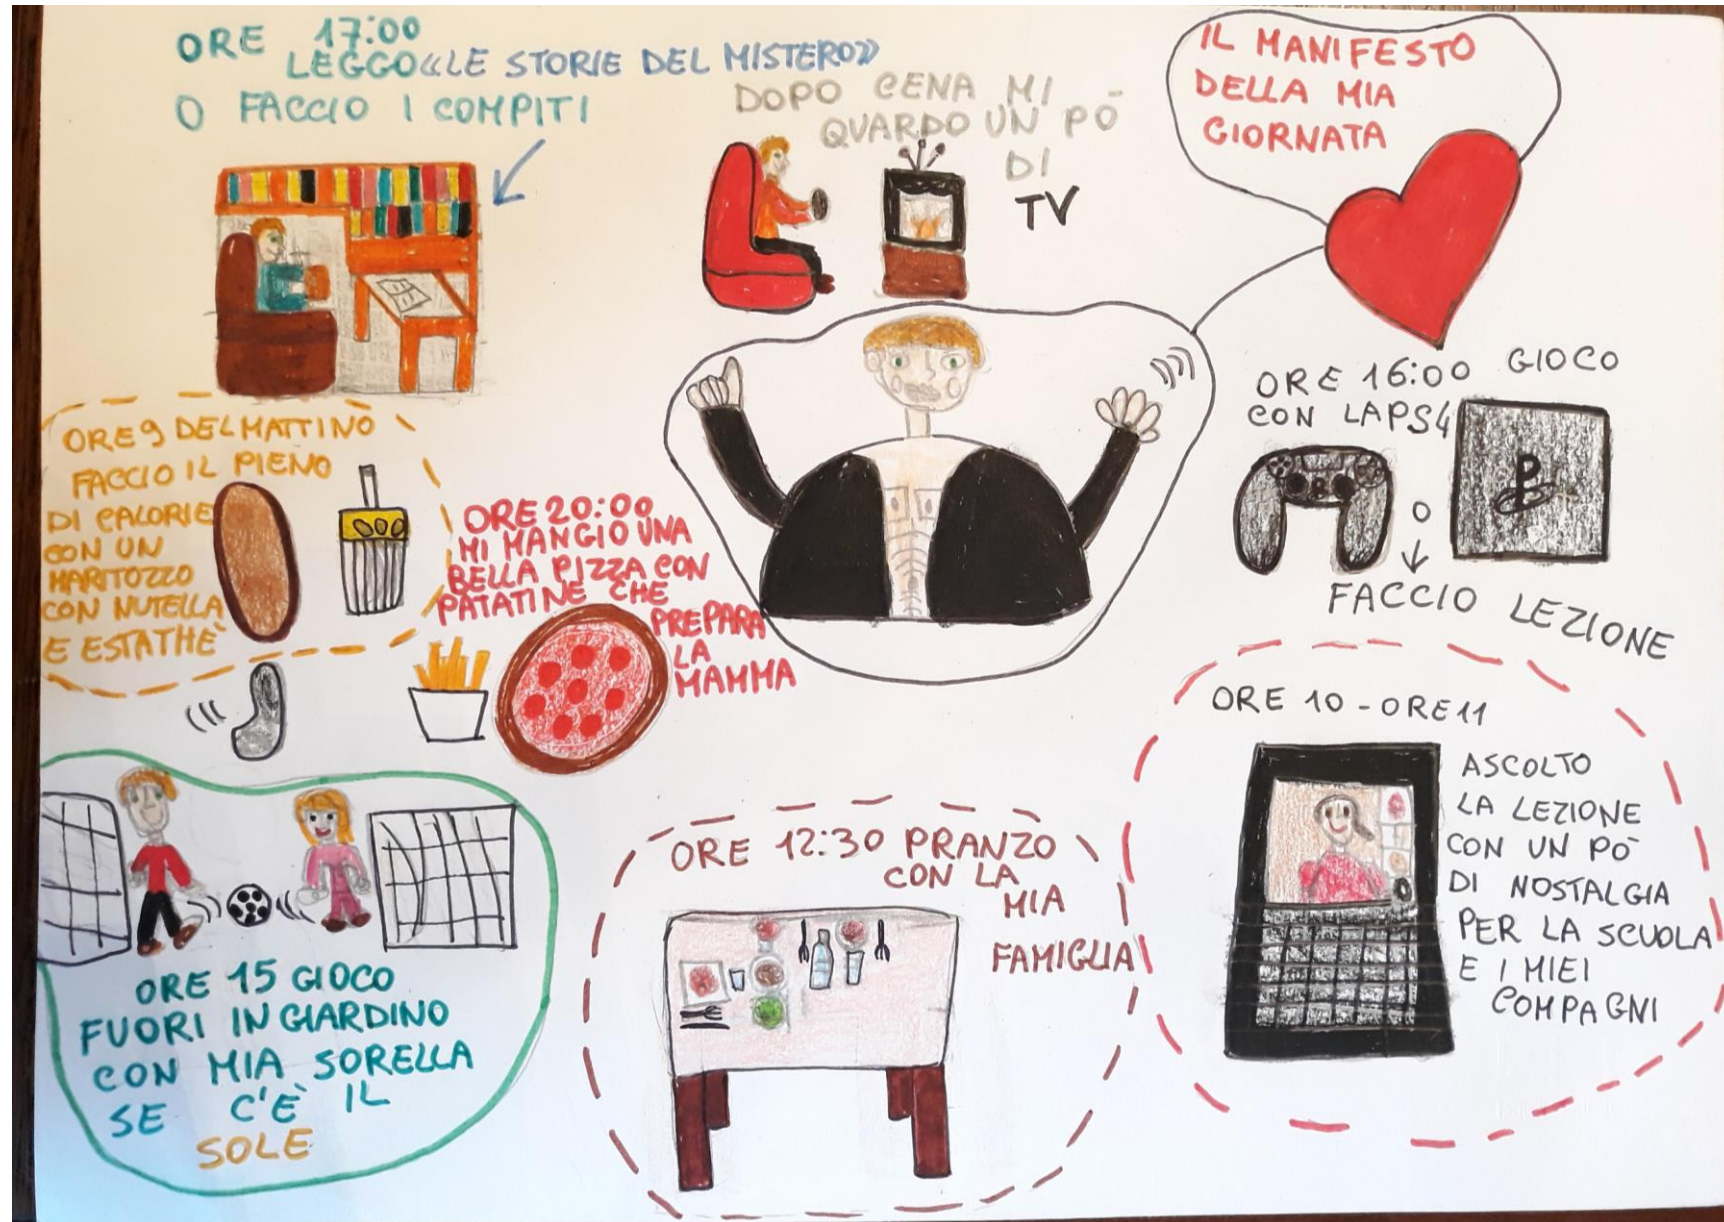 IL MANIFESTO
DELLA MIA
GIORNATA
ORE 17:00
LEGGO «LE STORIE DEL MISTERO»
O FACCIO I COMPITI
DOPO CENA MI
QUARDO UN PÒ
DI
TV
ORE 9 DEL MATTINO
FACCIO IL PIENO
DI CALORIE
CON UN
MARITOZZO
CON NUTELLA
E ESTATHÈ
ORE 20:00
MI MANGIO UNA
BELLA PIZZA CON
PATATINE CHE
PREPARA
LA
MAMMA
ORE 16:00 GIOCO
CON LA PS4
O
FACCIO LEZIONE
ORE 10 - ORE 11
ASCOLTO
LA LEZIONE
CON UN PÒ
DI NOSTALGIA
PER LA SCUOLA
E I MIEI
COMPAGNI
ORE 12:30 PRANZO
CON LA
MIA
FAMIGLIA
ORE 15 GIOCO
FUORI IN GIARDINO
CON MIA SORELLA
SE C'È IL
SOLE